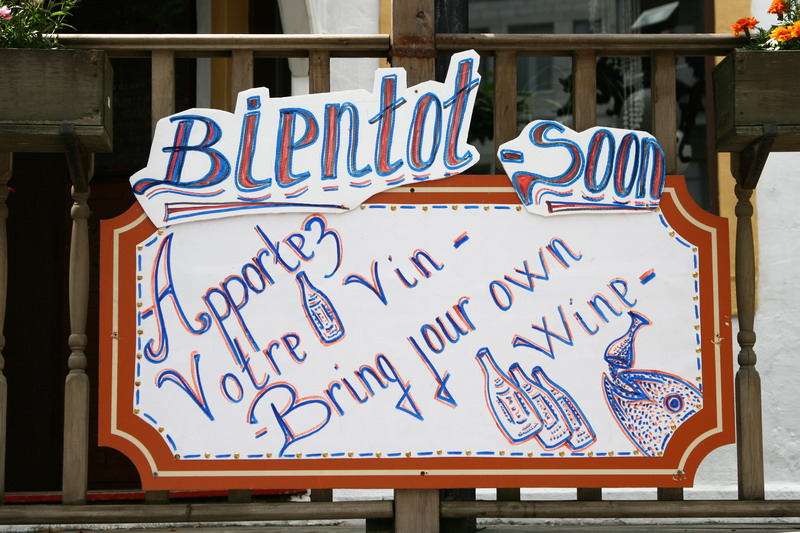 Bientot -Soon
Apportez
Votre Vin -
- Bring your own
Wine -